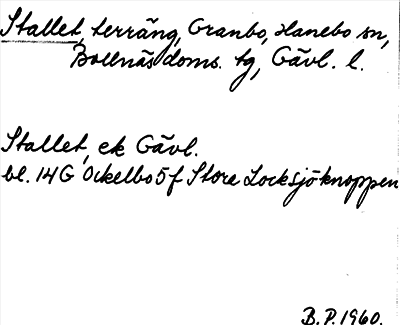 Stallet, terräng, Granbo, Hanebo sn,
Bollnäs doms. tg, Gävl. l.
Stallet, ek Gävl.
bl. 14G Ockelbo 5f Stora Locksjöknoppen
B.P. 1960.